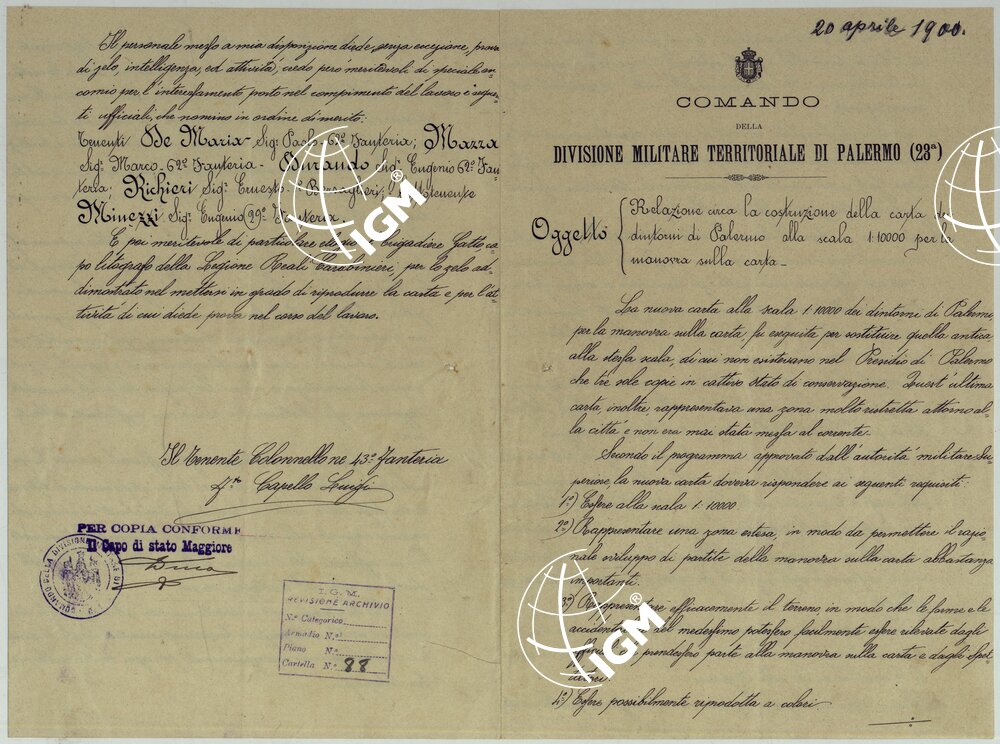 Il personale messo a mia disposizione diede, senza eccezione, prova
di zelo, intelligenza, ed attività, credo però meritevoli di speciale en=
comio per l'interessamento posto nel compimento del lavoro i seguen=
ti ufficiali, che nomino in ordine di merito:
Tenenti De Maria - Sig. Paolo 62º Fanteria; Mazza
Sigr Marco, 62º Fanteria - Durando Sigr Eugenio 62º Fan=
teria. Richieri Sigr Ernesto Bersaglieri; Sottotenente
Minezzi Sigr Eugenio 29º Fanteria.
E poi meritevole di particolare elogio il Brigadiere Gatto, ca=
po litografo della Legione Reali Carabinieri, per lo zelo ad=
dimostrato nel mettersi in grado di riprodurre la carta e per l'at=
tività di cui diede prova nel corso del lavoro.
Il Tenente Colonnello ne 43º Fanteria
Fto Capello Luigi
PER COPIA CONFORME
Il Capo di stato Maggiore
COMANDO DELLA DIVISIONE
I. G. M.
REVISIONE ARCHIVIO
N.º Categorico
Armadio N.º
Piano N.º
Cartella N.º 88
20 aprile 1900.
COMANDO
DELLA
DIVISIONE MILITARE TERRITORIALE DI PALERMO (23ª)
Oggetto { Relazione circa la costruzione della carta dei
dintorni di Palermo alla scala 1:10000 per la
manovra sulla carta_
La nuova carta alla scala 1:10000 dei dintorni di Palermo,
per la manovra sulla carta, fu eseguita per sostituire quella antica
alla stessa scala, di cui non esistevano nel Presidio di Palermo
che tre sole copie in cattivo stato di conservazione. Quest'ultima
carta, inoltre, rappresentava una zona molto ristretta attorno al=
la città e non era mai stata messa al corrente.
Secondo il programma approvato dall'autorità militare Su=
periore, la nuova carta doveva rispondere ai seguenti requisiti:
1º) Essere alla scala 1:10000.
2º) Rappresentare una zona estesa, in modo da permettere il razio=
nale sviluppo di partite della manovra sulla carta abbastanza
importanti.
3º) Rappresentare efficacemente il terreno, in modo che le forme e le
accidentalità nel medesimo potessero facilmente essere rilevate dagli
ufficiali prendessero parte alla manovra sulla carta e dagli spet=
tatori
4º) Essere possibilmente riprodotta a colori.
IGM®
IGM®
IGM